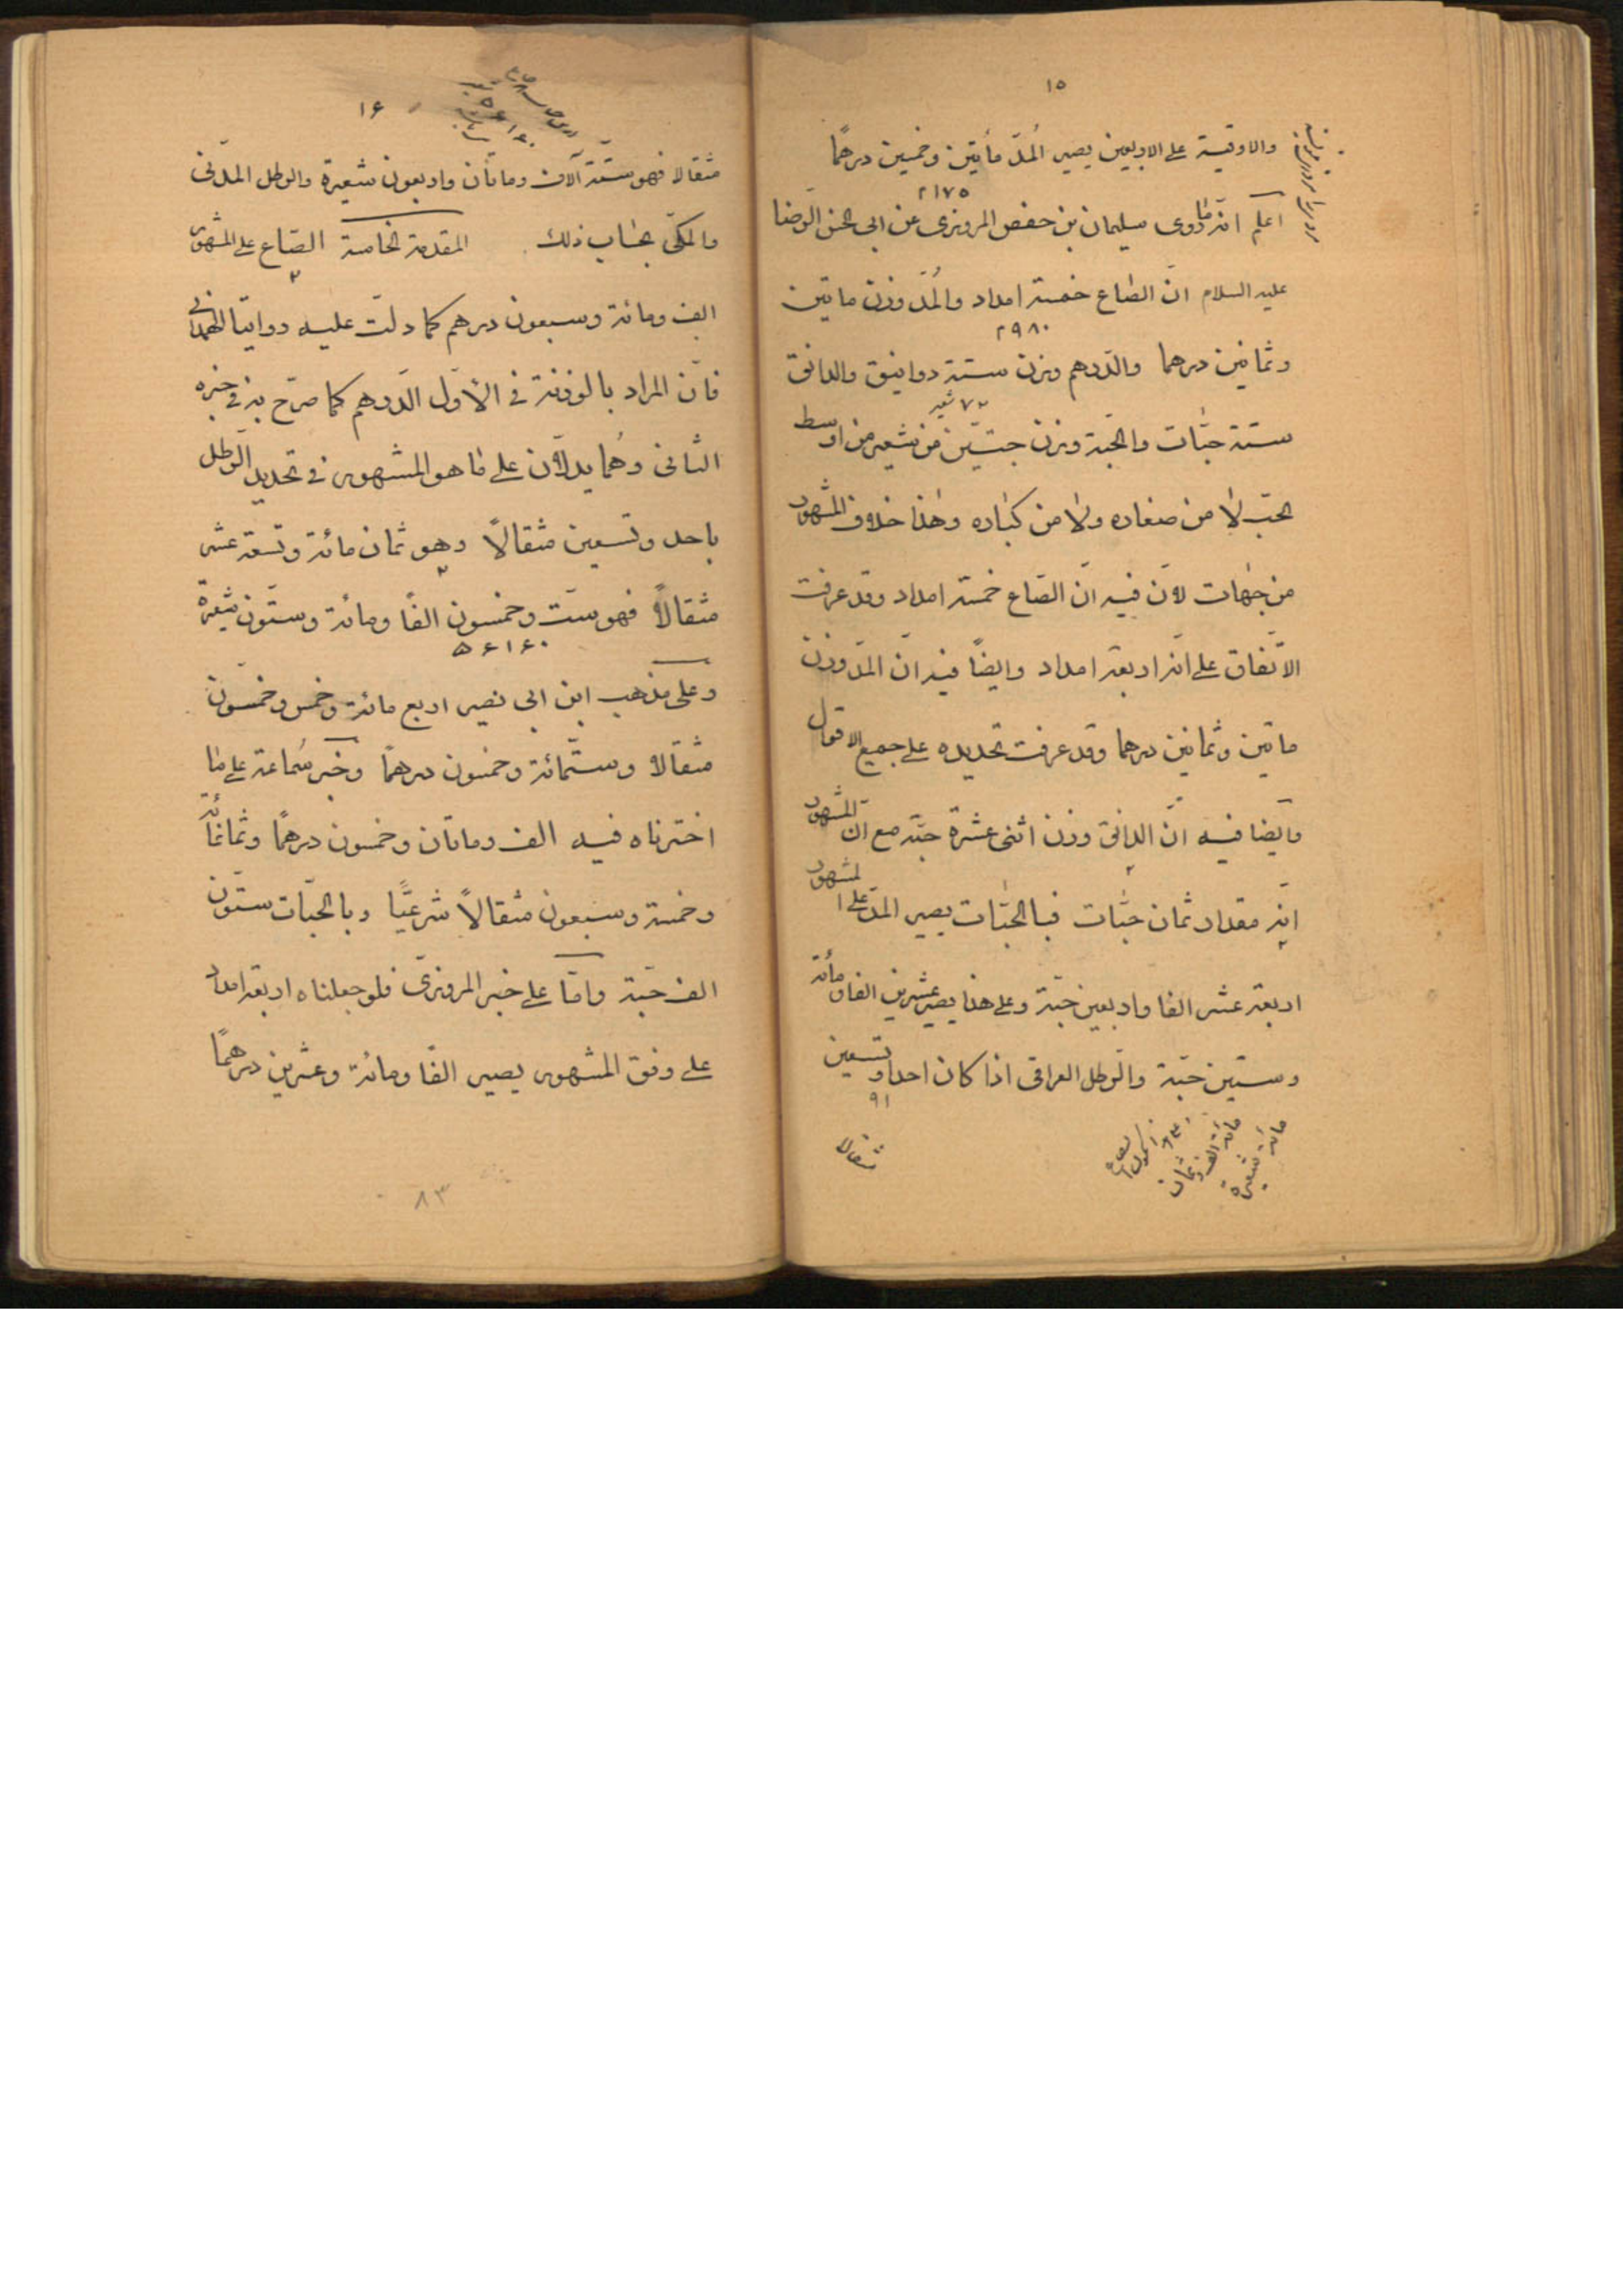 ١٥
والاوقية على الاربعين يصير المُدّ مأتين وخمسين درهمًا
٢١٧٥
اعلم انّ ما روى سليمان بن حفص المروزى عن ابى الحسن الرّضا
عليه السلام انّ الصّاع خمسة امداد والمُدّ وزن ماتين
٢٩٨٠
وثمانين درهما والدّرهم وزن ستة دوانيق والدانق
٧٢ شعير
ستة حبّات والحبّة وزن حبّتين من شعير من اوسط
الحبّ لا من صغاره ولا من كباره وهذا خلاف المشهور
من جهات لانّ فيه انّ الصّاع خمسة امداد وقد عرفت
الاتّفاق على انّه اربعة امداد وايضًا فيه انّ المدّ وزن
ماتين وثمانين درهما وقد عرفت تحديده على جميع الاقوال
وايضا فيه انّ الدانق وزن اثنى عشرة حبّة مع انّ المشهور
انّه مقدار ثمان حبّات فبالحبّات يصير المدّ على المشهور
اربعة عشر الفا واربعين حبّة وعلى هذا يصير عشرين الفا ومأئة
وستين حبّة والرّطل العراقى اذا كان احدا وتسعين
٩١
مثقالا
مائة شعيرة
١٦
مثقالا فهو ستّة آلاف ومأتان واربعون شعيرة والرطل المدّنى
والمكّى بحساب ذلك المقدمة الخامسة الصّاع على المشهور
الف ومائة وسبعون درهم كما دلّت عليه روايتا الهمدانى
فانّ المراد بالوزنة فى الاوّل الدّرهم كما صرّح به فى خبره
الثانى وهُما يدلاّن على ما هو المشهور فى تحديد الرّطل
باحد وتسعين مثقالاً وهو ثمان مائة وتسعة عشر
مثقالاً فهو ستّ وخمسون الفًا ومائة وستّون شعيرة
٥۶١۶٠
وعلى مذهب ابن ابى نصير اربع مائة وخمس وخمسون
مثقالا وستّمائة وخمسون درهمًا وخبر سُماعة على ما
اخترناه فيه الف وماتان وخمسون درهمًا وثمانمائة
وخمسة وسبعون مثقالاً شرعيًّا وبالحبّات ستّون
الف حبّة وامّا على خبر المروزىّ فلو جعلناه اربعة امداد
على وفق المشهور يصير الفًا ومائة وعشرين درهمًا
٨٣